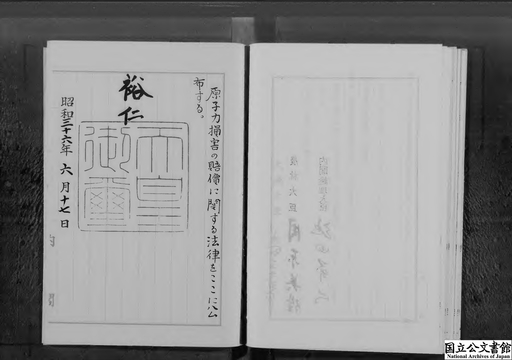 原子力損害の賠償に関する法律をここに公
布する。
裕仁
天皇
御璽
昭和三十六年 六月十七日
国立公文書館
National Archives of Japan